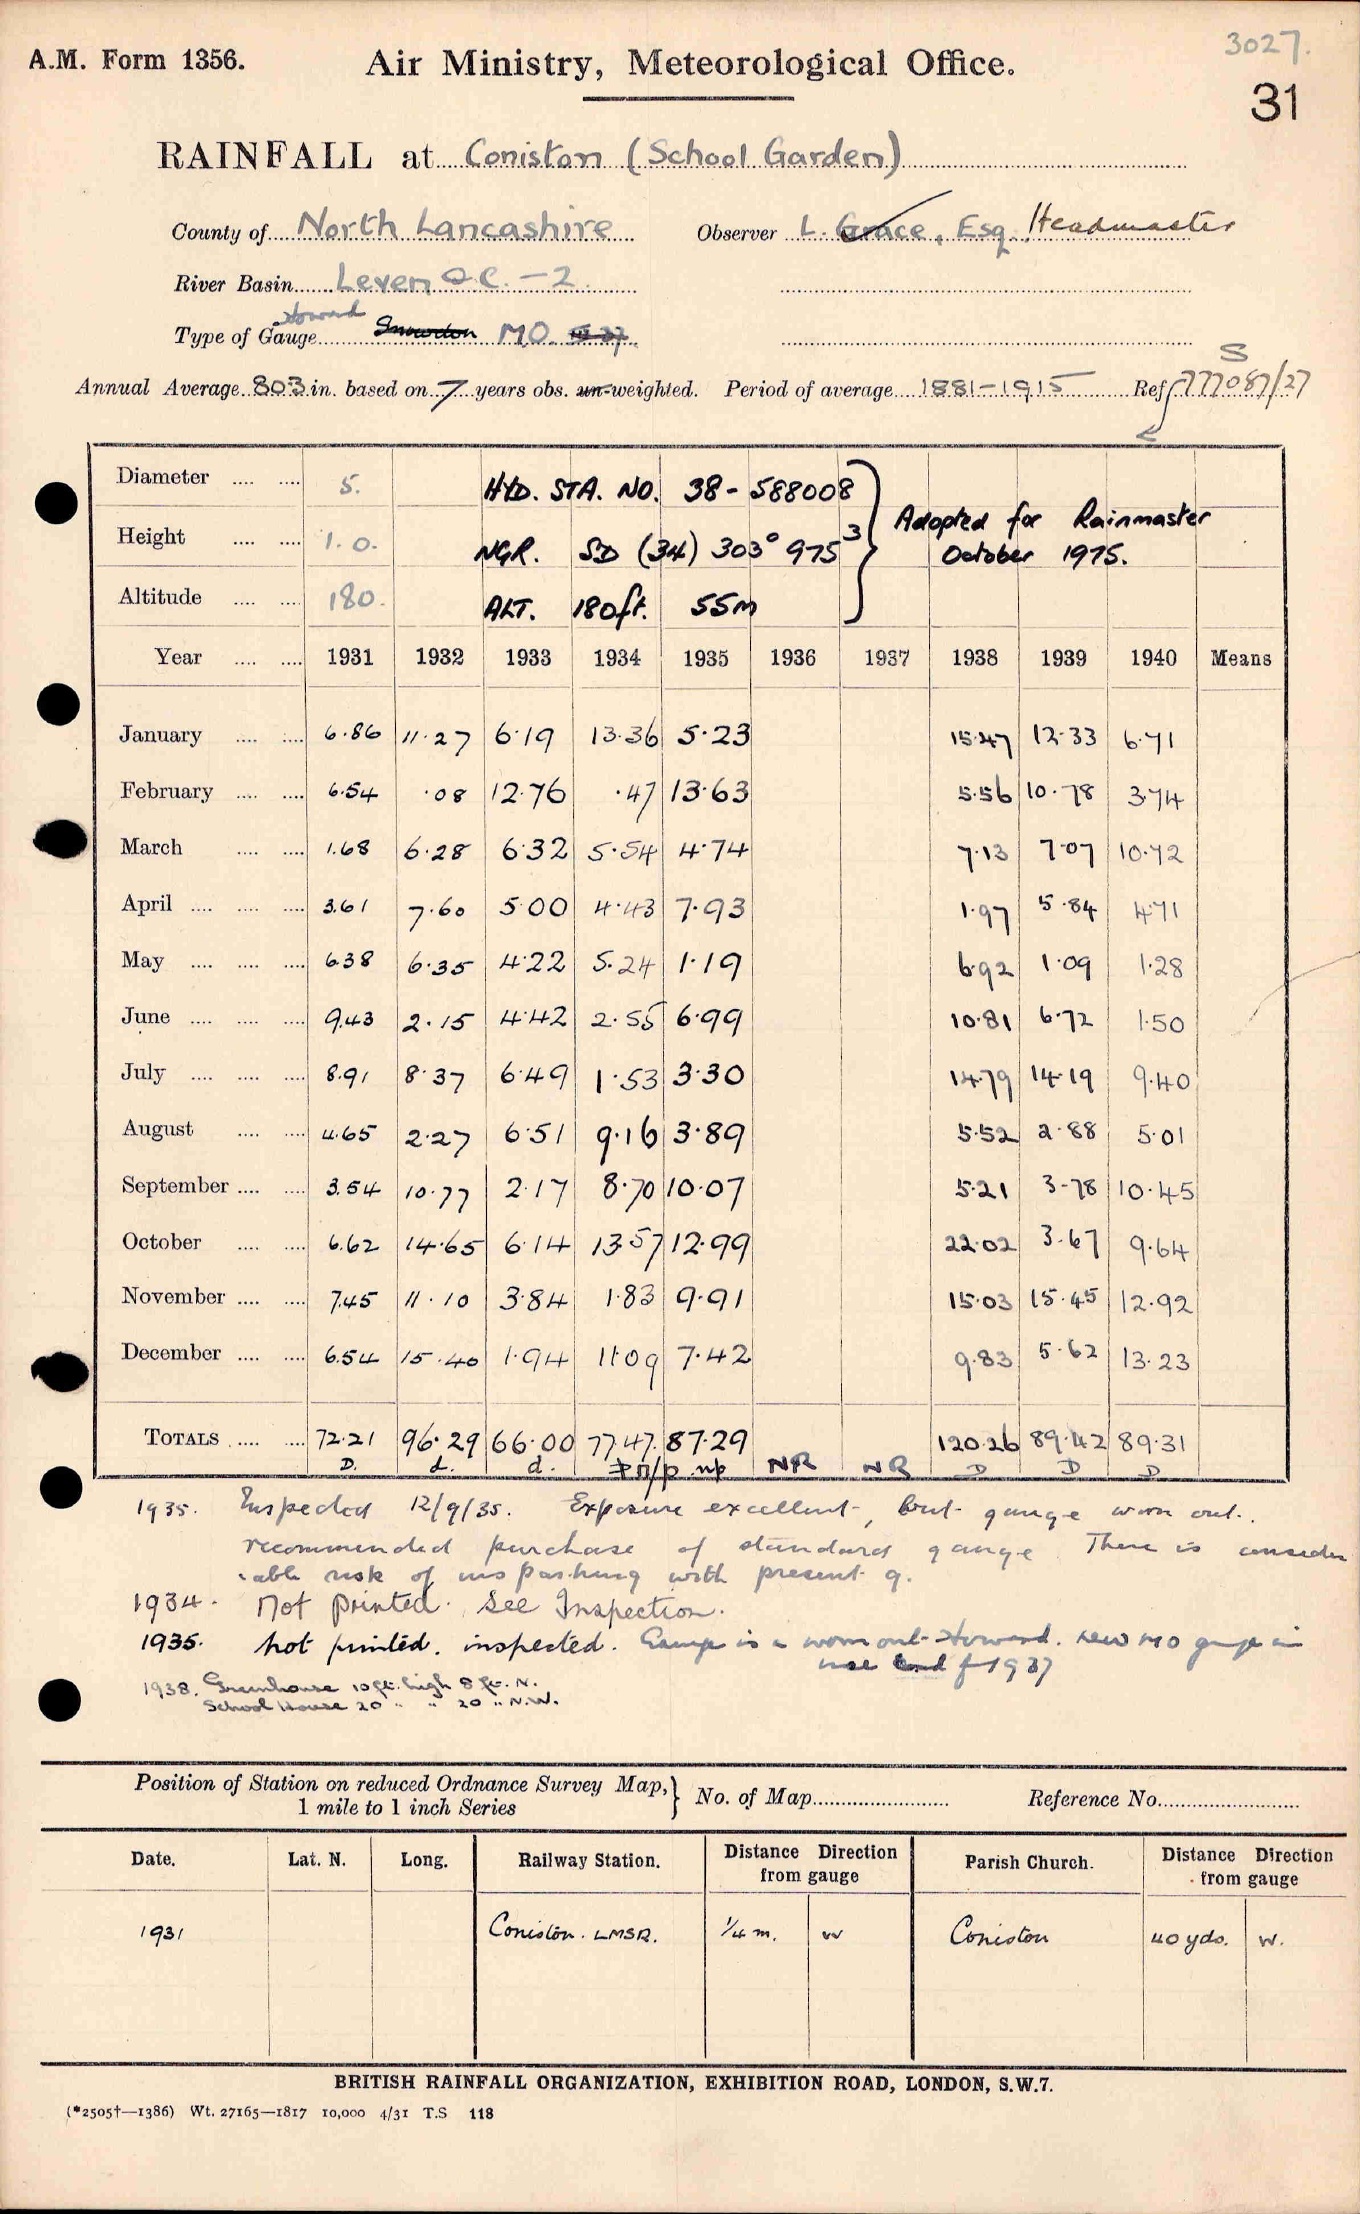 3027.
A.M. Form 1356. Air Ministry, Meteorological Office.
31
RAINFALL at Coniston (School Garden)
County of North Lancashire Observer L. Grace, Esq. Headmaster
River Basin Leven &C. - 2
Howard
Type of Gauge Snowdon M.O.
S
Annual Average 80.3 in. based on 7 years obs. un-weighted. Period of average 1881-1915 Ref 777087/27
Diameter .... .... 5. HYD. STA. NO. 38- 588008
Height .... .... 1. 0. NGR. SD (34) 303⁰ 975³ Adopted for Rainmaster October 1975.
Altitude .... .... 180. ALT. 180ft. 55m
Year .... .... 1931 1932 1933 1934 1935 1936 1937 1938 1939 1940 Means
January .... .... 6.86 11.27 6.19 13.36 5.23 15.47 12.33 6.71
February .... .... 6.54 .08 12.76 .47 13.63 5.56 10.78 3.74
March .... .... 1.68 6.28 6.32 5.54 4.74 7.13 7.07 10.72
April .... .... .... 3.61 7.60 5.00 4.43 7.93 1.97 5.84 4.71
May .... .... .... 6.38 6.35 4.22 5.24 1.19 6.92 1.09 1.28
June .... .... .... 9.43 2.15 4.42 2.55 6.99 10.81 6.72 1.50
July .... .... .... 8.91 8.37 6.49 1.53 3.30 14.79 14.19 9.40
August .... .... 4.65 2.27 6.51 9.16 3.89 5.52 2.88 5.01
September .... .... 3.54 10.77 2.17 8.70 10.07 5.21 3.78 10.45
October .... .... 6.62 14.65 6.14 13.57 12.99 22.02 3.67 9.64
November .... .... 7.45 11.10 3.84 1.83 9.91 15.03 15.45 12.92
December .... .... 6.54 15.40 1.94 11.09 7.42 9.83 5.62 13.23
TOTALS .... .... 72.21 96.29 66.00 77.47 87.29 120.26 89.42 89.31
D. d. d. n/p np NR NR D D D
1935. Inspected 12/9/35. Exposure excellent, but gauge worn out.
recommended purchase of standard gauge There is consider
able risk of insplashing with present g.
1934. Not printed. See Inspection.
1935. not printed. inspected. Gauge is a worn out Howard. New MO gauge in
use end of 1937
1938. Greenhouse 10 ft. high 8 ft. N.
School House 20 " " 20 " N.W.
Position of Station on reduced Ordnance Survey Map,} No. of Map Reference No.
1 mile to 1 inch Series
Date. Lat. N. Long. Railway Station. Distance Direction from gauge Parish Church. Distance Direction from gauge
1931 Coniston. LMSR. 1/4 m. W Coniston 40 yds. W.
BRITISH RAINFALL ORGANIZATION, EXHIBITION ROAD, LONDON, S.W.7.
(*2505†—1386) Wt. 27165—1817 10,000 4/31 T.S 118